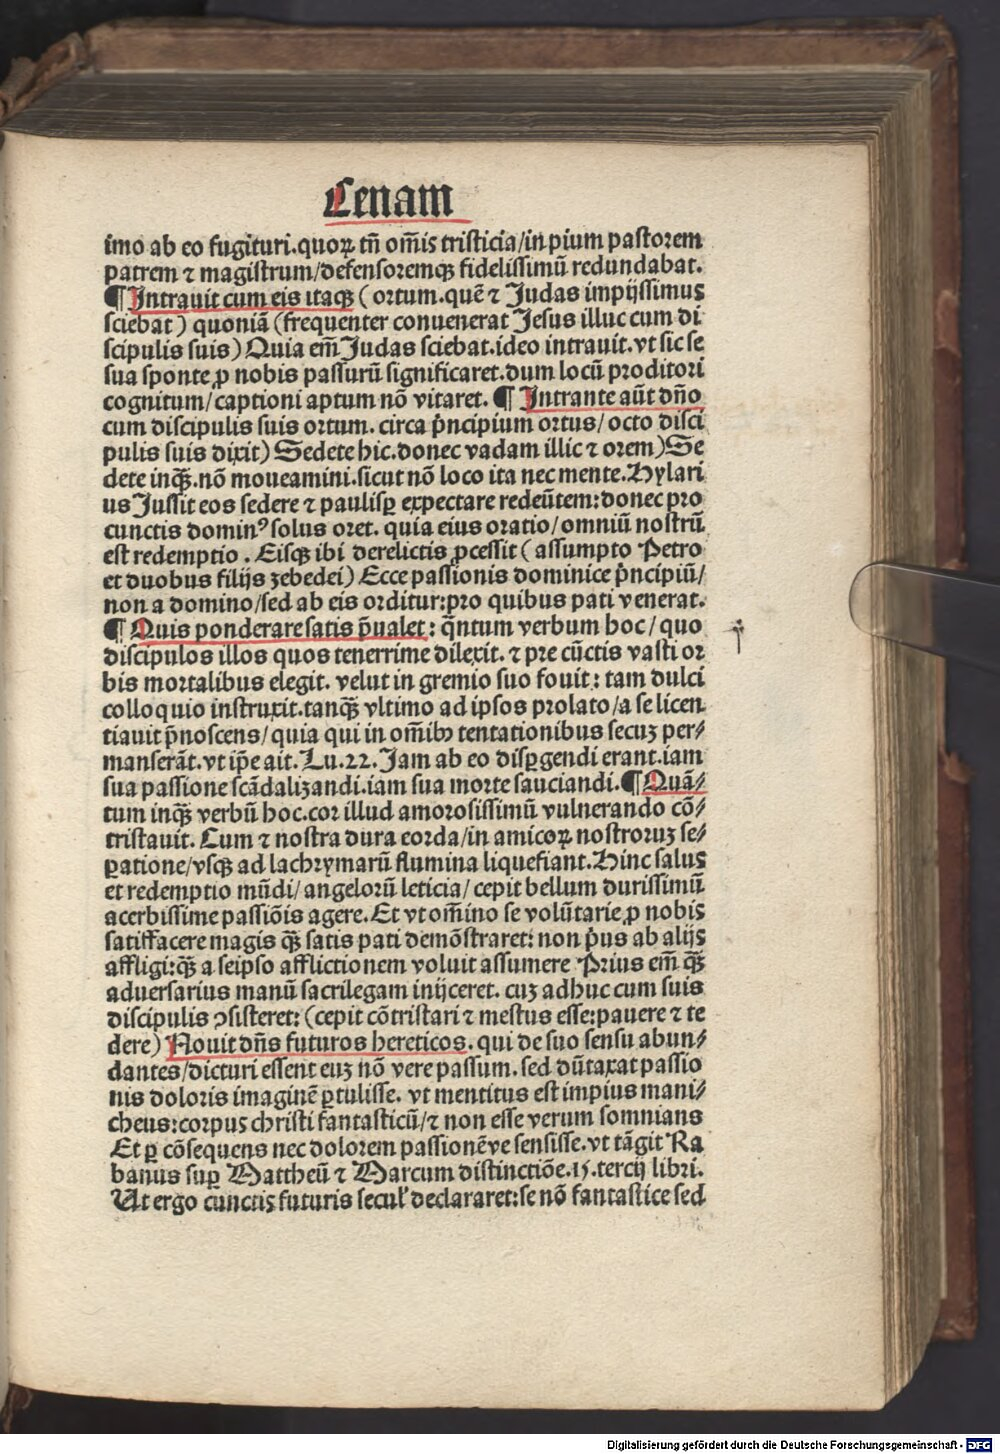 Cenam
imo ab eo fugituri.quoꝝ tñ om̄is tristicia/in pium pastorem
patrem ⁊ magistrum/defensoremqꝫ fidelissimū redundabat.
¶ Intrauit cum eis itaqꝫ (ortum.quē ⁊ Judas impijssimus
sciebat) quoniā (frequenter conuenerat Jesus illuc cum di
scipulis suis) Quia em̄ Judas sciebat.ideo intrauit.vt sic se
sua sponte ꝓ nobis passurū significaret.dum locū proditori
cognitum/captioni aptum nō vitaret. ¶ Intrante aūt dño
cum discipulis suis ortum. circa p̄ncipium ortus/octo disci
pulis suis dixit) Sedete hic.donec vadam illic ⁊ orem) Se
dete inqꝫ.nō moueamini.sicut nō loco ita nec mente.Hylari
us Jussit eos sedere ⁊ paulisꝑ expectare redeūtem:donec pro
cunctis dominꝰ solus oret. quia eius oratio/omniū nostrū
est redemptio. Eisqꝫ ibi derelictis ꝓcessit (assumpto Petro
et duobus filijs zebedei) Ecce passionis dominice p̄ncipiū/
non a domino/sed ab eis orditur:pro quibus pati venerat.
¶ Quis ponderare satis p̄ualet: q̄ntum verbum hoc/quo
discipulos illos quos tenerrime dilexit. ⁊ pre cūctis vasti or
bis mortalibus elegit. velut in gremio suo fouit: tam dulci
colloquio instruxit.tanqꝫ̄ vltimo ad ipsos prolato/a se licen
tiauit p̄noscens/quia qui in om̄ibꝫ tentationibus secuꝫ per⸗
manserāt.vt ip̄e ait.Lu.22.Jam ab eo disꝑgendi erant.iam
sua passione scādalizandi.iam sua morte sauciandi. ¶ Quā⸗
tum inqꝫ̄ verbū hoc.cor illud amorosissimū vulnerando cō⸗
tristauit. Cum ⁊ nostra dura corda/in amicoꝝ nostroruꝫ se⸗
ꝑatione/vsqꝫ ad lachrymarū flumina liquefiant.Hinc salus
et redemptio mūdi/angelorū leticia/cepit bellum durissimū
acerbissime passiōis agere.Et vt om̄ino se volūtarie ꝓ nobis
satisfacere magis qꝫ̄ satis pati demōstraret: non p̄us ab alijs
affligi:qꝫ̄ a seipso afflictionem voluit assumere Prius em̄ qꝫ̄
aduersarius manū sacrilegam inijceret. cuꝫ adhuc cum suis
discipulis ꝯsisteret: (cepit cōtristari ⁊ mestus esse:pauere ⁊ te
dere) Nouit dñs futuros hereticos. qui de suo sensu abun⸗
dantes/dicturi essent euꝫ nō vere passum. sed dūtaxat passio
nis doloris imaginē ꝑtulisse. vt mentitus est impius mani⸗
cheus:corpus christi fantasticū/⁊ non esse verum somnians
Et ꝑ cōsequens nec dolorem passionēve sensisse.vt tāgit Ra
banus suꝑ Mattheū ⁊ Marcum distinctiōe.15.tercij libri.
Ut ergo cunctis futuris secul' declararet:se nō fantastice sed
Digitalisierung gefördert durch die Deutsche Forschungsgemeinschaft - DFG